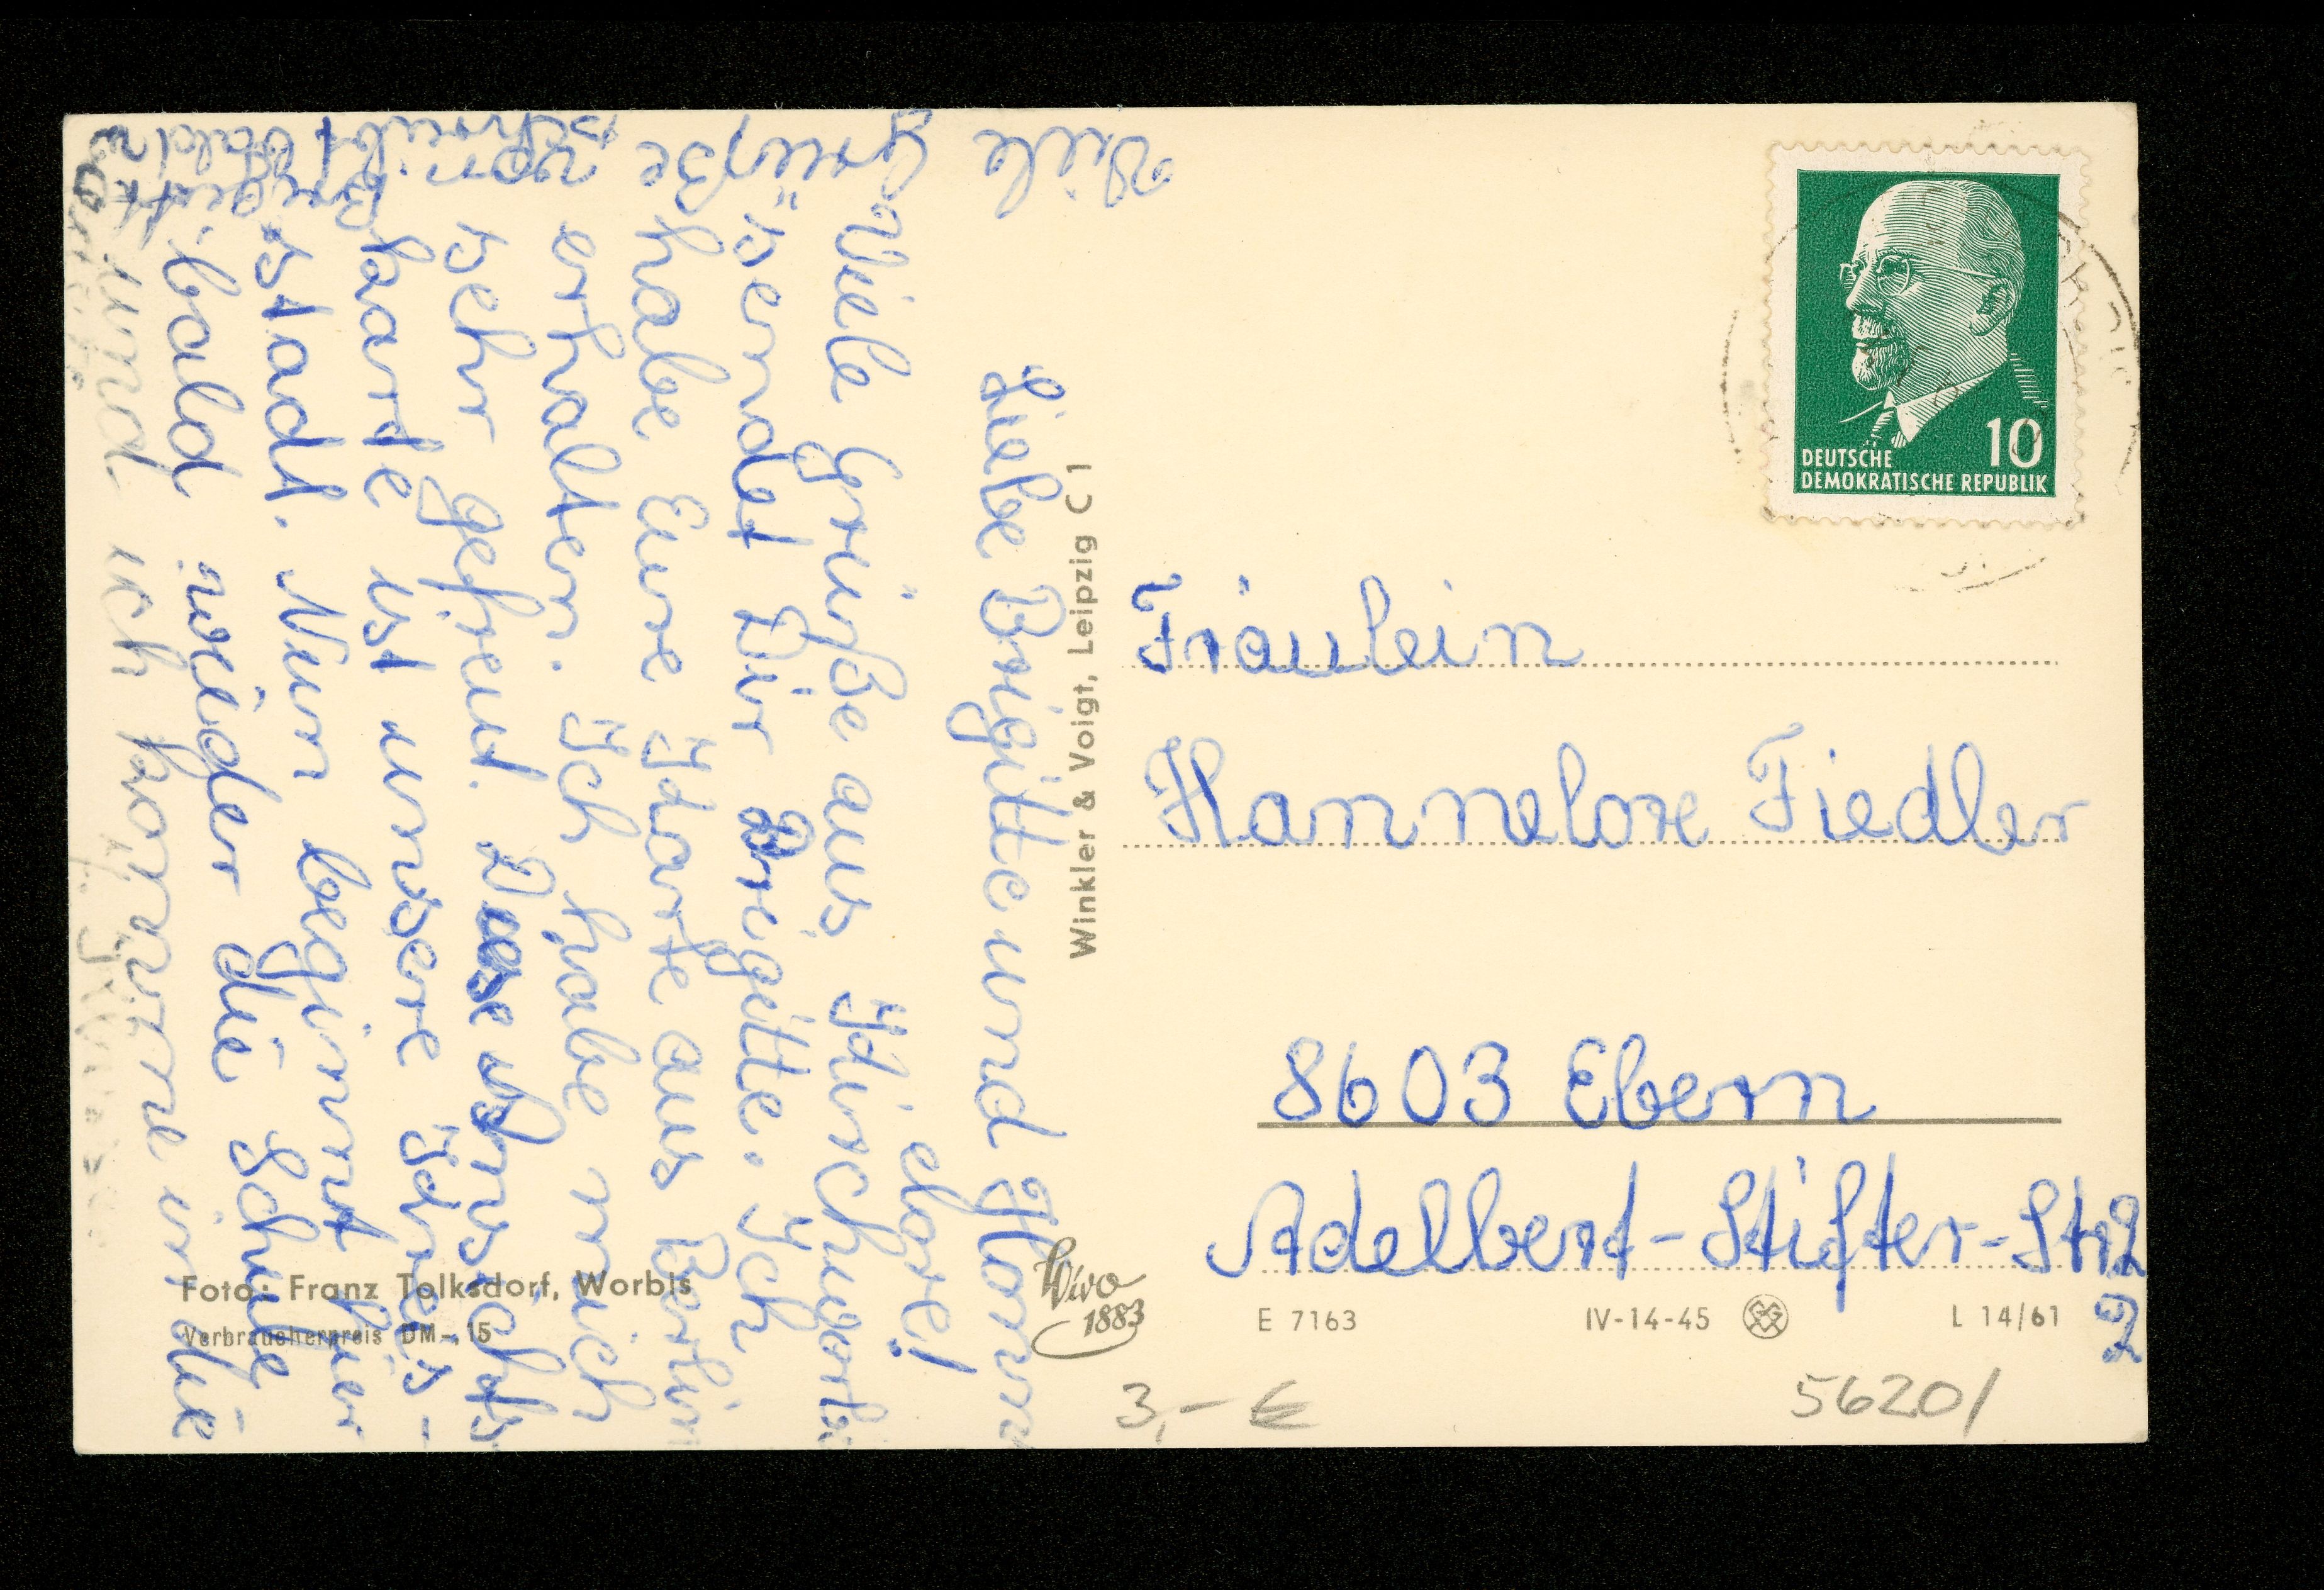 Liebe Brigitte und Hanne
elore!
Viele Grüße aus Kirchworbis
sendet Dir Brigitte. Ich
habe Eure Karte aus Berlin
erhalten. Ich habe mich
sehr gefreut. Diese Ansichts
karte ist unsere Kreis-
stadt. Nun beginnt hier
bald wieder die Schule
und ich komme in die
Viele
Grüße
von
Schreibt
bald
DEUTSCHE
DEMOKRATISCHE REPUBLIK
10
Winkler & Voigt, Leipzig C 1
Fräulein
Hannelore Fiedler
8603 Ebern
Adelbert-Stifter-Str 2
2
Foto: Franz Tolksdorf, Worbis
Verbraucherpreis DM -,15
Wivo
1883
E 7163
IV-14-45
L 14/61
3,- €
5620/